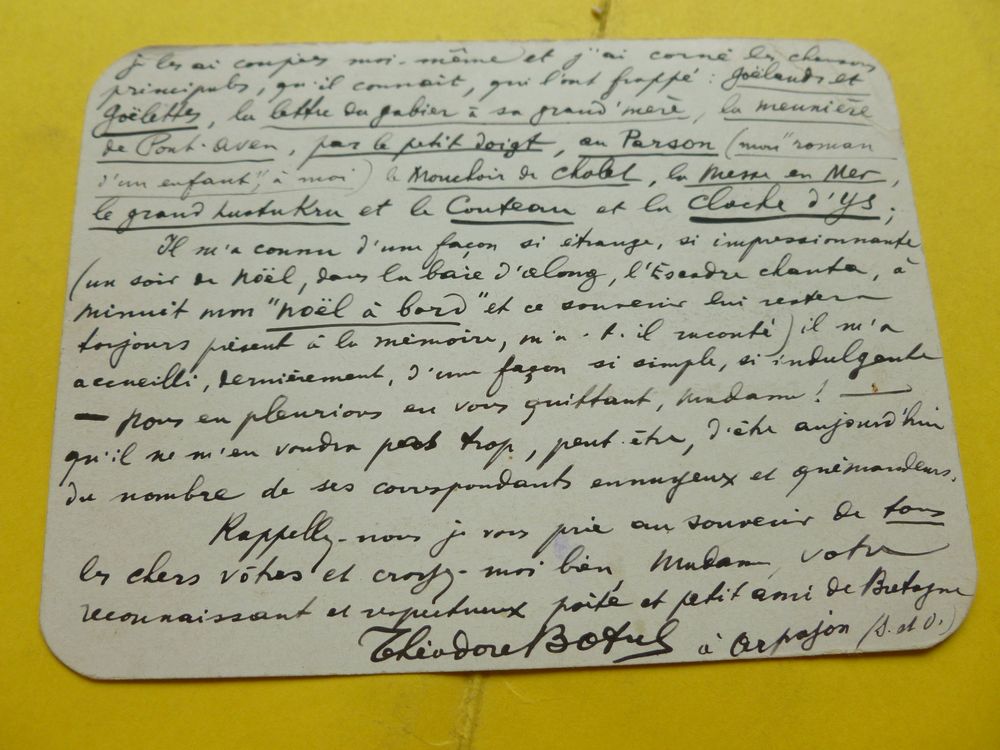 je les ai coupées moi-même et j'ai corné les chansons
principales, qu'il connait, qui l'ont frappé : Goëlands et
Goëlettes, la lettre du gabier à sa grand'mère, la meunière
de Pont-Aven, par le petit doigt, au Parson (mon "roman
d'un enfant", à moi) le Mouchoir de Cholet, la Messe en Mer,
le grand Lustukru et le Couteau et la Cloche d'Ys ;
Il m'a connu d'une façon si étrange, si impressionnante
(un soir de Noël, dans la baie d'Along, l'Escadre chanta, à
minuit mon "Noël à bord" et ce souvenir lui restera
toujours présent à la mémoire, m'a-t-il raconté) il m'a
accueilli, dernièrement, d'une façon si simple, si indulgente
— nous en pleurions en vous quittant, Madame ! —
qu'il ne m'en voudra pas trop, peut-être, d'être aujourd'hui
du nombre de ses correspondants ennuyeux et quémandeurs.
Rappelez-nous je vous prie au souvenir de tous
les chers vôtres et croyez-moi bien, Madame, votre
reconnaissant et respectueux poète et petit ami de Bretagne
Théodore Botrel à Arpajon (S. et O.)